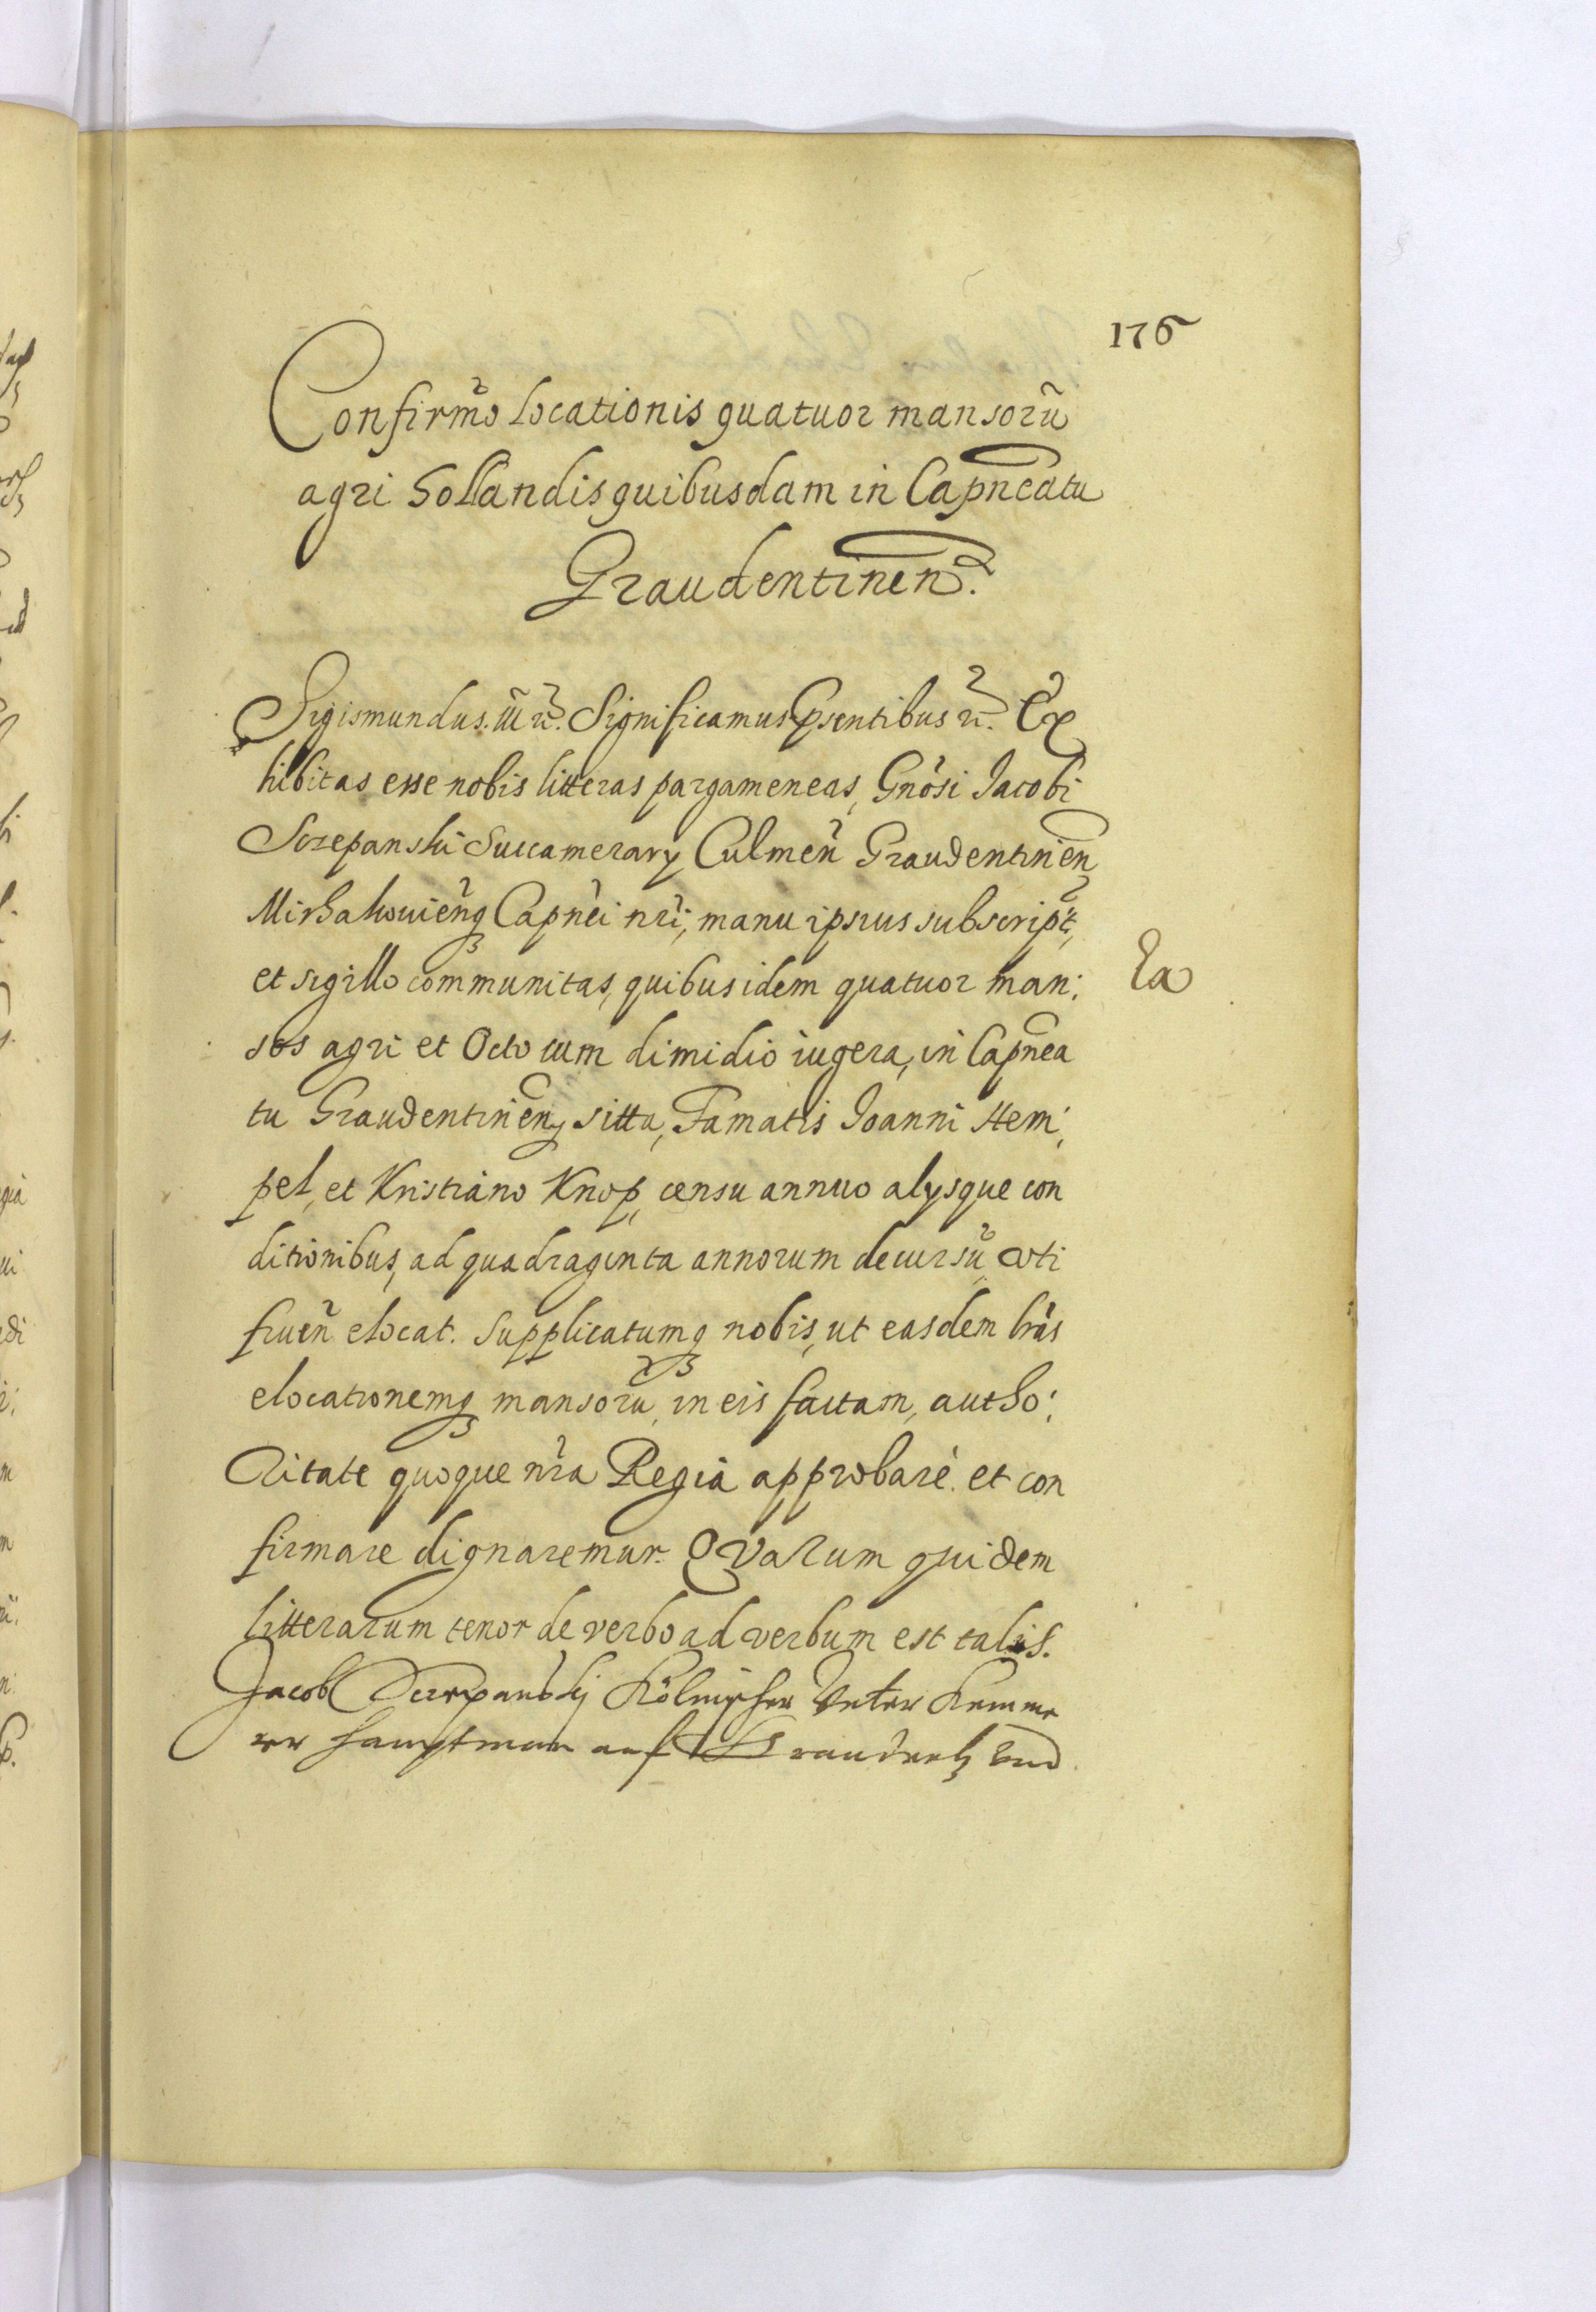 176
Confirm̃o locationis quatuor mansorũ
agri Hollandis quibusdam in Capñeatu
Graudentinen̄.
Sigismundus. iii r̃. Significamus p̃sentibus r̃. Ex
hibitas esse nobis litteras pargameneas, Gnõsi Jacobi
Sczepanski Succamerarÿ Culmen̄ Graudentinen̄
Mirhahowien̄q Capñei nr̃i, manu ipsius subscript̃,
et sigillo communitas, quibus idem quatuor man:
sos agri et Octo cum dimidio iugera, in Capñea
tu Graudentinen̄, sitta, Famatis Joanni Hem:
pel, et Kristiano Knop, censu annuo alÿsque con
ditionibus, ad quadraginta annorum decursũ, vti
fruen̄ elocat. Supplicatumq nobis, ut easdem lr̃as
elocationemq mansorũ, in eis factam, autho:
ritate quoque nr̃a Regia approbare. et con
firmare dignaremur. Qvarum quidem
litterarum tenor de verbo ad verbum est talis.
Jacob Sczepanskÿ Kölmischer Vnter Kemme
rer Hauptman auf Graudentz vnd